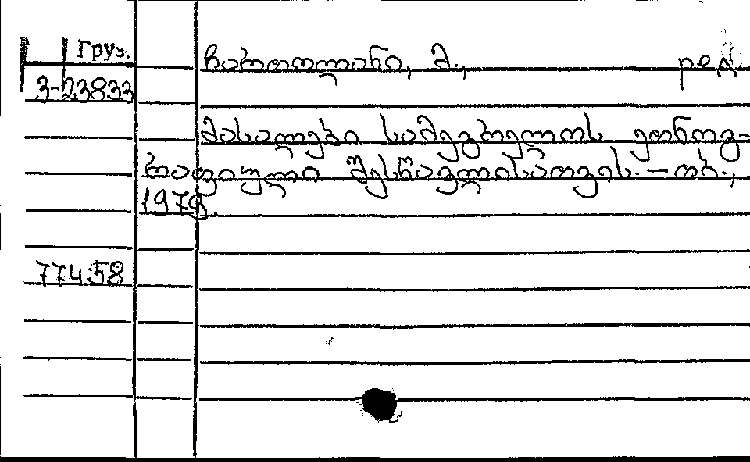 Груз.
3-23833
ჩართოლანი, მ., ред.
მასალები სამეგრელოს ეთნოგ-
რაფიული შესწავლისათვის. – თბ.,
1979.
77458